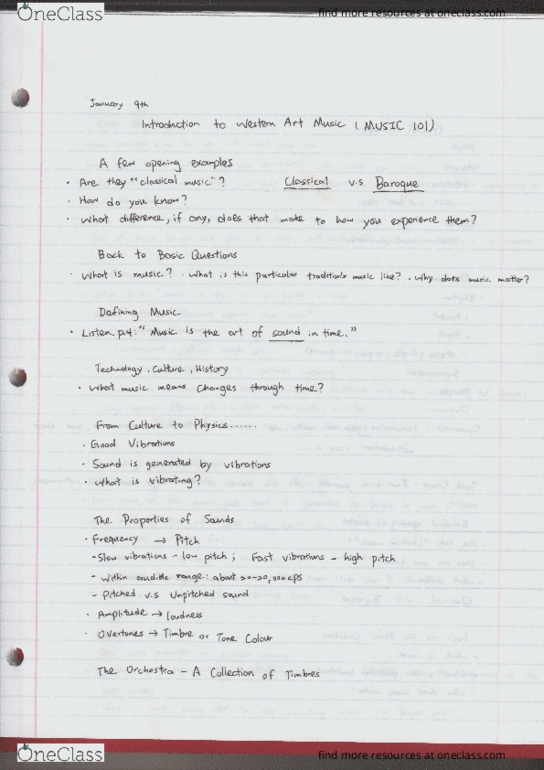 OneClass
find more resources at oneclass.com
January 9th
Introduction to Western Art Music (MUSIC 101)
A few opening examples
· Are they "classical music"? Classical v.s Baroque
· How do you know?
· What difference, if any, does that make to how you experience them?
Back to Basic Questions
· What is music? · What is this particular tradition's music like? · Why does music matter?
Defining Music
· Listen. p.4: "Music is the art of sound in time."
Technology, Culture, History
· What music means changes through time?
From Culture to Physics......
· Good Vibrations
· Sound is generated by vibrations
· What is vibrating?
The Properties of Sounds
· Frequency → Pitch
- Slow vibrations - low pitch; Fast vibrations - high pitch
- Within audible range: about 20-20,000 cps
- Pitched v.s Unpitched sound
· Amplitude → loudness
· Overtones → Timbre or Tone Colour
The Orchestra - A Collection of Timbres
OneClass
find more resources at oneclass.com